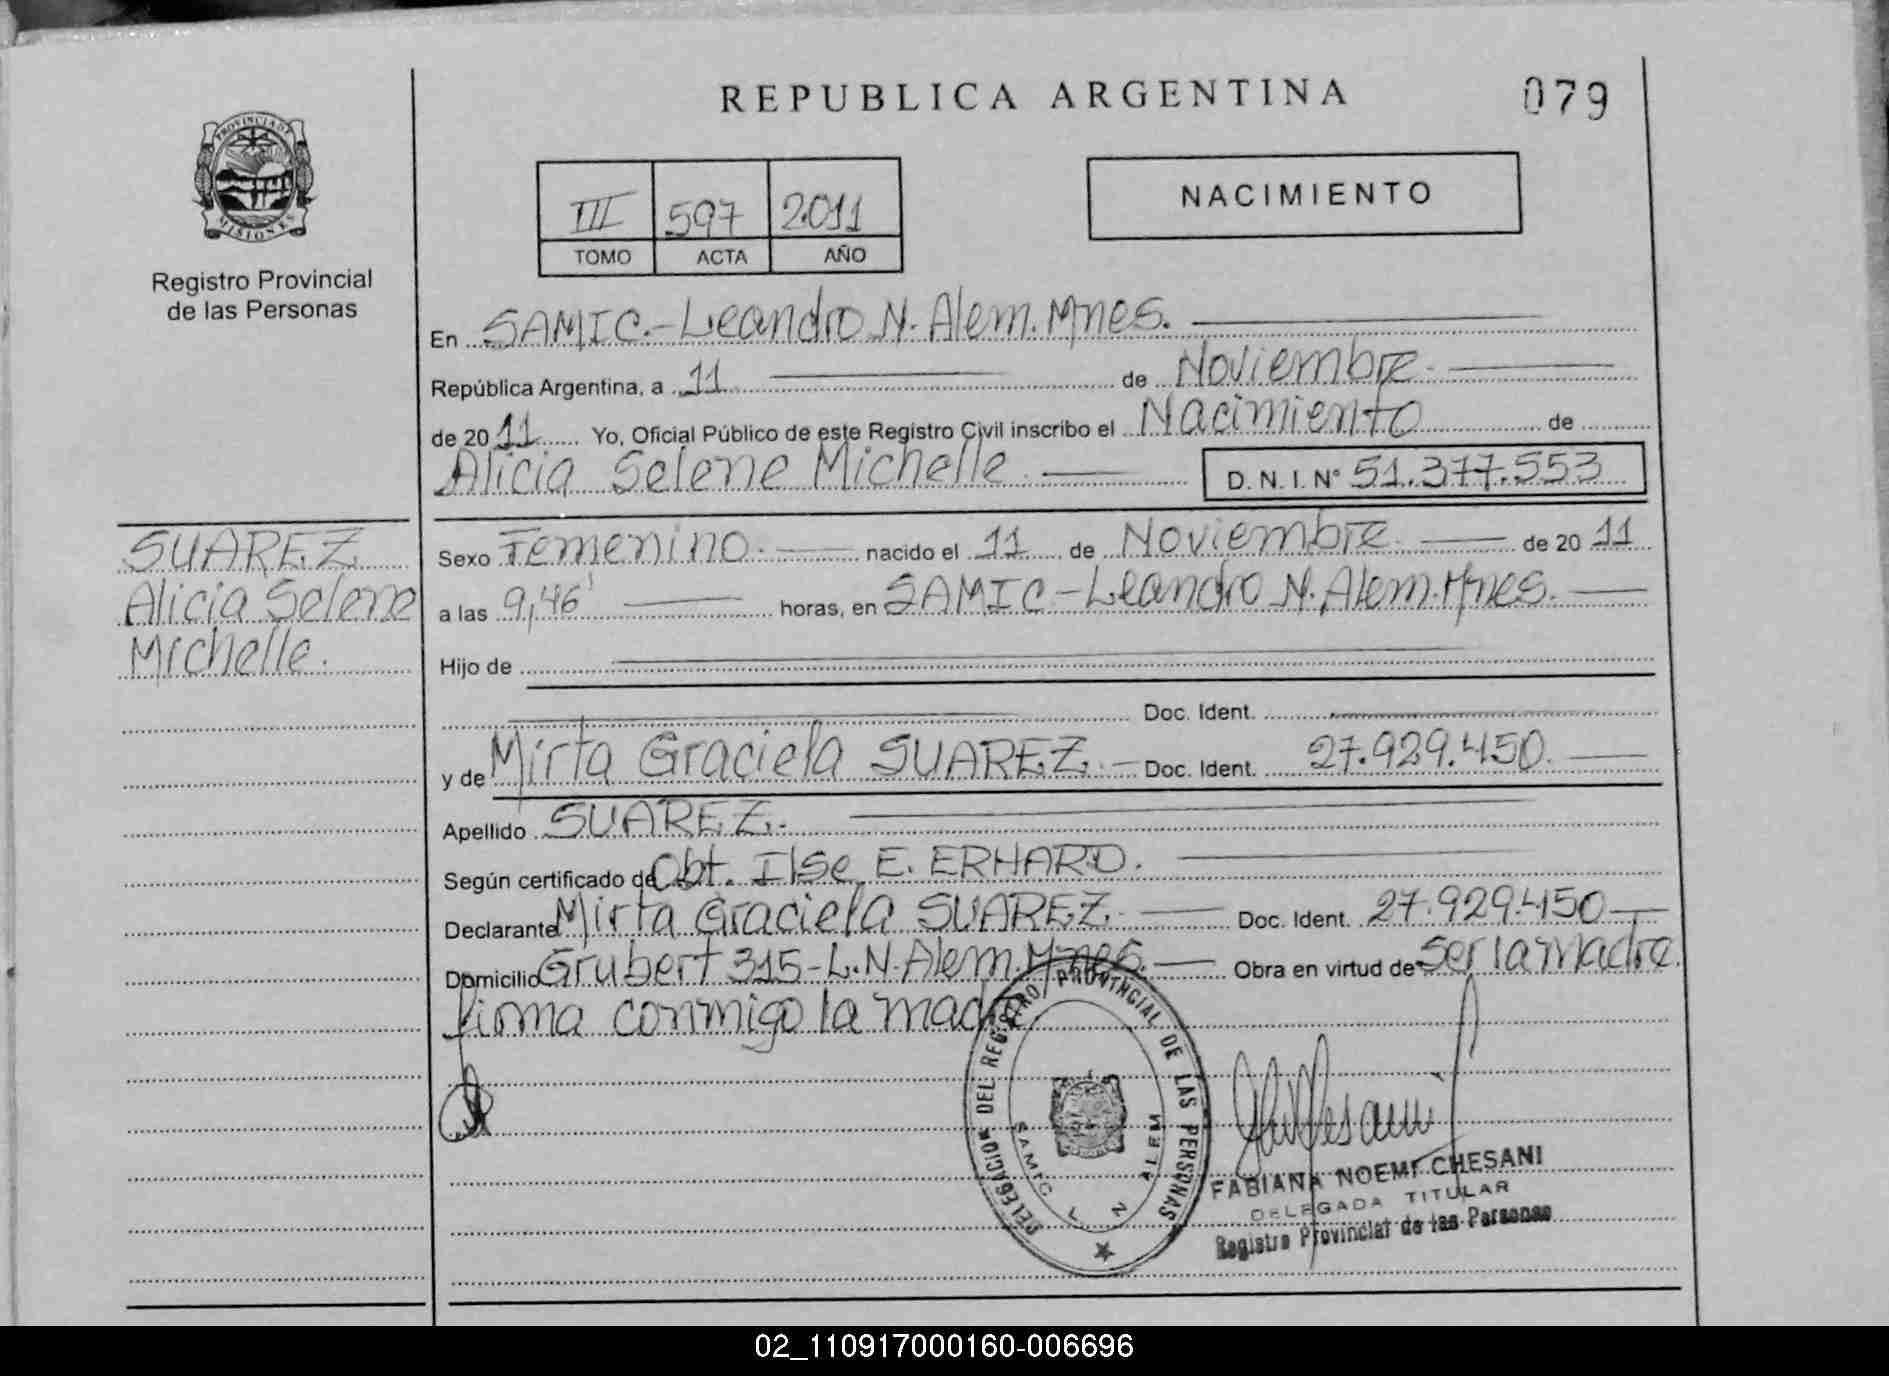 REPUBLICA ARGENTINA
079
PROVINCIA DE MISIONES
Registro Provincial
de las Personas
III 597 2011
TOMO ACTA AÑO
NACIMIENTO
En SAMIC.-Leandro N. Alem. Mnes.
República Argentina, a 11 de Noviembre.
de 20 11 Yo, Oficial Público de este Registro Civil inscribo el Nacimiento de
Alicia Selene Michelle. D. N. I. N° 51.377.553
SUAREZ
Alicia Selene
Michelle.
Sexo Femenino. nacido el 11 de Noviembre de 20 11
a las 9,46' horas, en SAMIC-Leandro N. Alem. Mnes.
Hijo de
Doc. Ident.
y de Mirta Graciela SUAREZ. Doc. Ident. 27.929.450.
Apellido SUAREZ.
Según certificado de Obt. Ilse E. ERHARD.
Declarante Mirta Graciela SUAREZ. Doc. Ident. 27.929.450
Domicilio Grubert 315-L.N. Alem. Mnes. Obra en virtud de ser la madre.
firma conmigo la madre
DELEGACION DEL REGISTRO PROVINCIAL DE LAS PERSONAS
SAMIC L N ALEM
FABIANA NOEMI CHESANI
DELEGADA TITULAR
Registro Provincial de las Personas
02_110917000160-006696